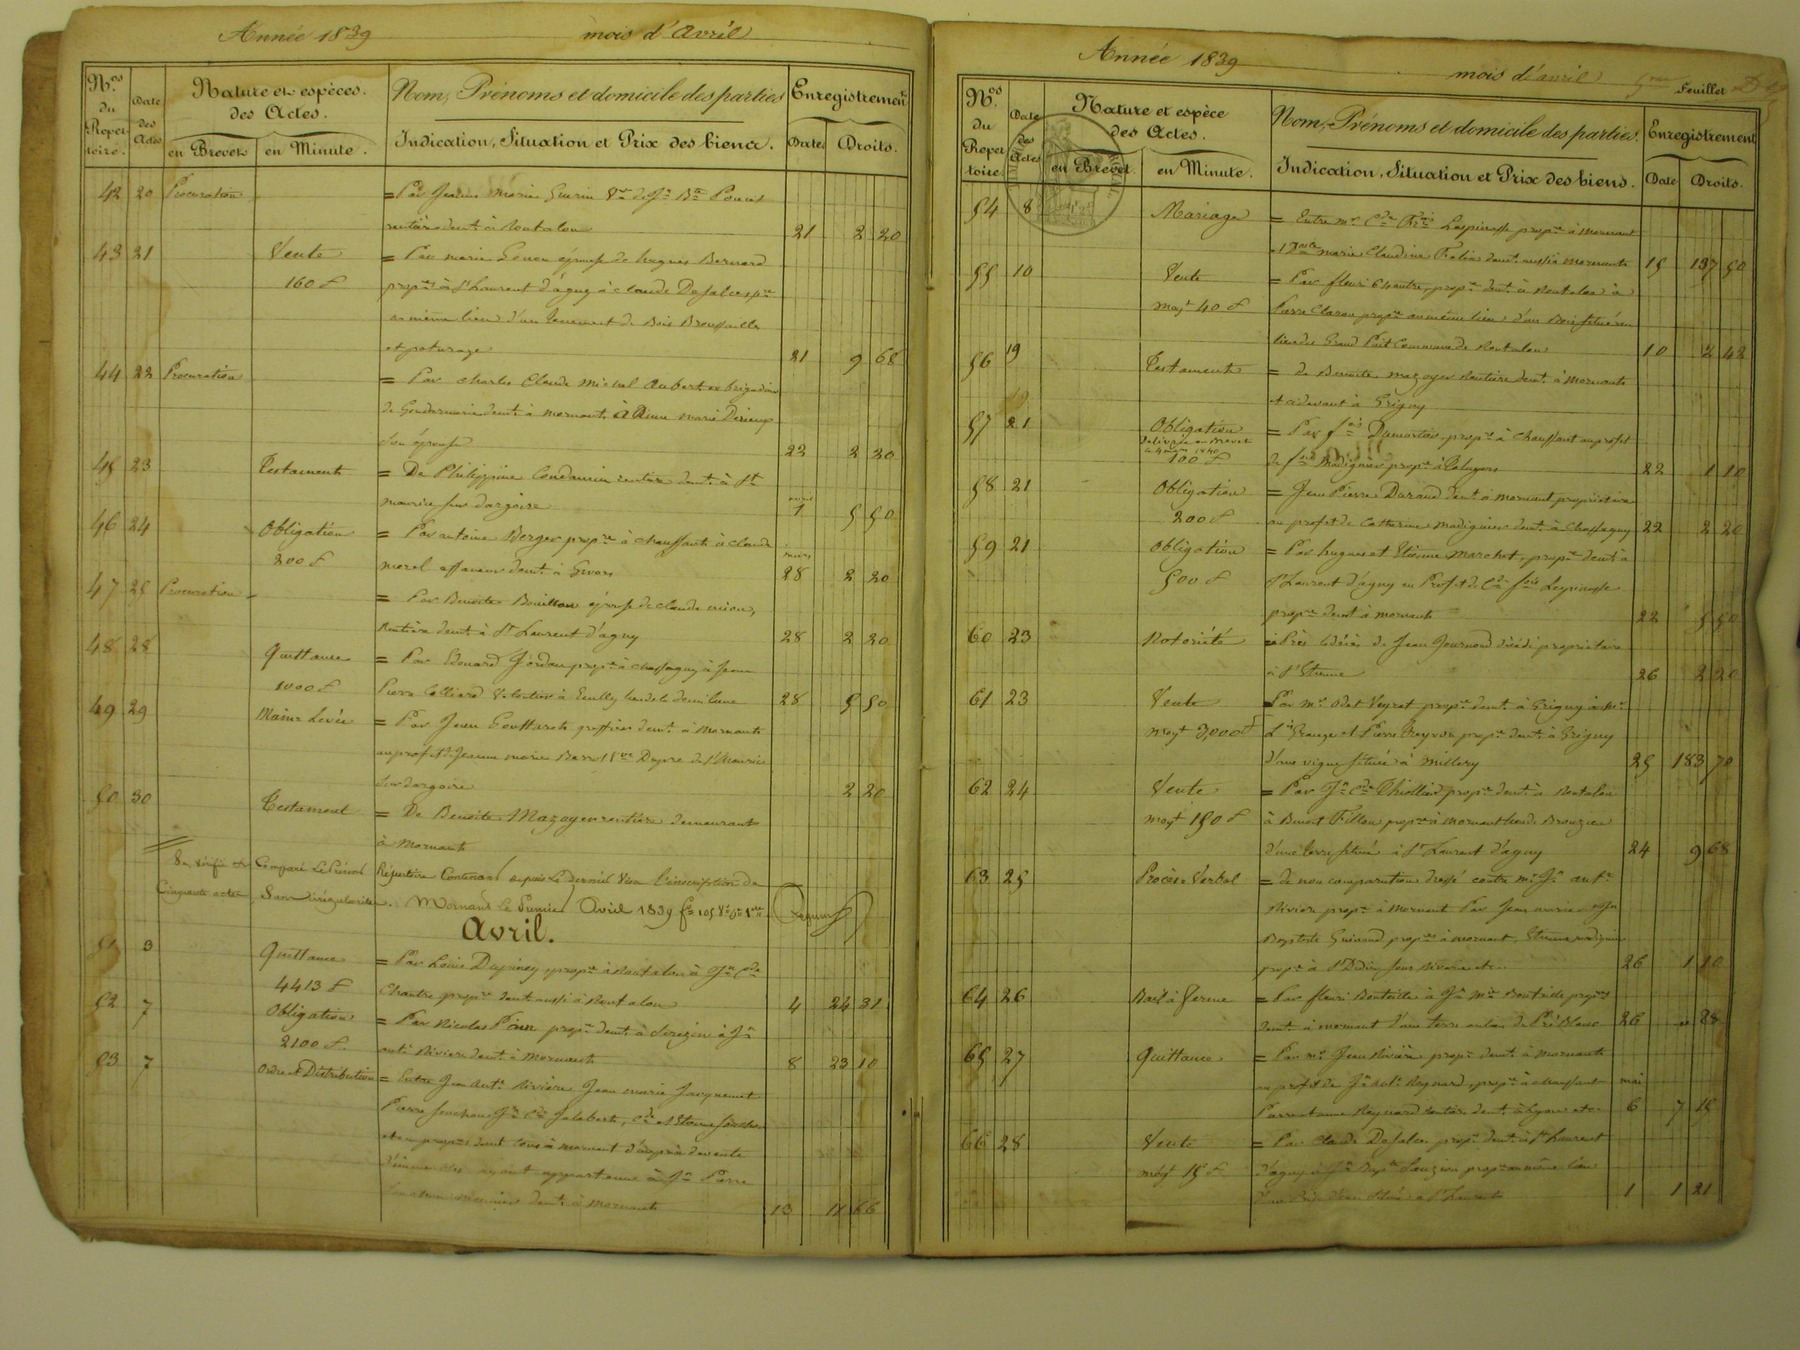 Année 1839 mois d'Avril
Nos du Repertoire. Date des Actes Nature et espèces des Actes. en Brevet en Minute. Nom, Prénoms et domicile des parties Indication, Situation et Prix des biens. Enregistrement Dates Droits.
42 20 Procuration = Par Jeanne Marie Guerin Ve de Jn Bte
rentière demt à Rontalon 21 2 20
43 21 Vente = Par Marie épouse de hugues Bernard
160 f propre à St Laurent d'agny à claude Dafalce
au même lieu d'un tenement de Bois Broussaille
et paturage 21 9 68
44 22 Procuration = Par Charles Claude Michel Aubert ex brigadier
de Gendarmerie demt à Mornant à Anne Marie
son épouse 22 2 20
45 23 Testament = De Philippine Condamin rentière demt à St
maurice sur dargoire 1 5 50
46 24 Obligation = Par antoine Berger propre à chaussant à claude
200 f morel demt à Givors mars 28 2 20
47 25 Procuration = Par Benoite Bouillon épouse de claude
Rentière demt à St Laurent d'agny 28 2 20
48 28 Quittance = Par Edouard Jordan propre à chassagny à Jean
1000 f Pierre Colliard à lieu de la demi lune 28 5 50
49 29 Main Levée = Par Jean greffier demt à Mornant
au profit de Jeanne marie Dupré de St Maurice
sur dargoire 2 20
50 30 Testament = De Benoite Mazoyer rentière demeurant
à Mornant
Vu vérifié et Comparé Le Présent Répertoire Contenant depuis Le dernier Visa l'inscription de
Cinquante actes Sans irrégularités. Mornant le Premier Avril 1839
Avril.
51 3 Quittance = Par Louis Dupiney propre à Rontalon à Jn Cde
4413 f Chantre propre demt aussi à Rontalon 4 24 31
52 7 Obligation = Par Nicolas propre demt à à Jn
2100 f. ante Rivière demt à Mornant 8 23 10
53 7 Ordre et Distribution = Entre Jean Ante Rivière Jean marie Jacquemet
Pierre Jn Cde Jalabert, Cde et Etienne
demt tous à Mornant du prix de vente
d'immeubles ayant appartenu à Jn Pierre
demt à Mornant 13 11 66
Année 1839 mois d'avril 5me Feuillet
Nos du Repertoire Date des Actes Nature et espèce des Actes. en Brevet. en Minute. Nom, Prénoms et domicile des parties. Indication, Situation et Prix des biens. Enregistrement Date Droits.
54 8 Mariage = Entre mr Cde Fcois Lespinasse propre à Mornant
et Dlle marie Claudine demt aussi à Mornant 15 137 50
55 10 Vente = Par fleuri Chantre, propre demt à Rontalon à
moyt 40 f Pierre Claron propre au même lieu d'un Bois situé au
lieu du Grand Pait Commune de Rontalon 10 2 42
56 19 Testament = de Benoite mazoyer Rentière demt à Mornant
et a devant à Grigny
57 21 Obligation = Par fois Dumortier propre à Chaussant au profit
délivrée en brevet
100 f de fois Madignier propre à Taluyers 22 1 10
58 21 Obligation = Jean Pierre Durand demt à Mornant propriétaire
200 f au profit de Catherine Madignier demt à Chassagny 22 2 20
59 21 Obligation = Par hugues et Etienne Marchet, propre demt à
500 f St Laurent d'agny au Profit de Cde fois Lespinasse
propre demt à Mornant 22 5 50
60 23 Notoriété = Après le décès de Jean Journoud décédé propriétaire
à St Etienne 26 2 20
61 23 Vente Par Mr Odet Veyret propre demt à Grigny à
moyt 3,000 f Grange et Pierre propre demt à Grigny
d'une vigne située à Millery 25 183 70
62 24 Vente = Par Jn Cde Thiollier propre demt à Rontalon
moyt 150 f à Benoit Fillon propre à Mornant
d'une terre située à St Laurent d'agny 24 9 68
63 25 Procès Verbal = de non comparution dressé contre Mr Jn ante
Rivière propre à Mornant Par Jean marie et Jn
Baptiste Guinand propre à Mornant, Etienne madignier
propre à St Didier sous Riverie etc. 26 1 10
64 26 Bail à ferme = Par fleuri Bouteille à Jn Mie Bouteille propres
demt à Mornant d'une terre au lieu de Pré Blanc 26 28
65 27 Quittance = Par Mr Jean Rivière propre demt à Mornant
au profit de Jn Bte Reynard, propre à chaussant mai
Pierre anne Reynard rentière demt à Lyon etc. 6 7 15
66 28 Vente = Par Claude Dafalce propre demt à St Laurent
moyt 15 f d'agny à Jn Bapte propre au même lieu
situé à St Laurent 1 1 21